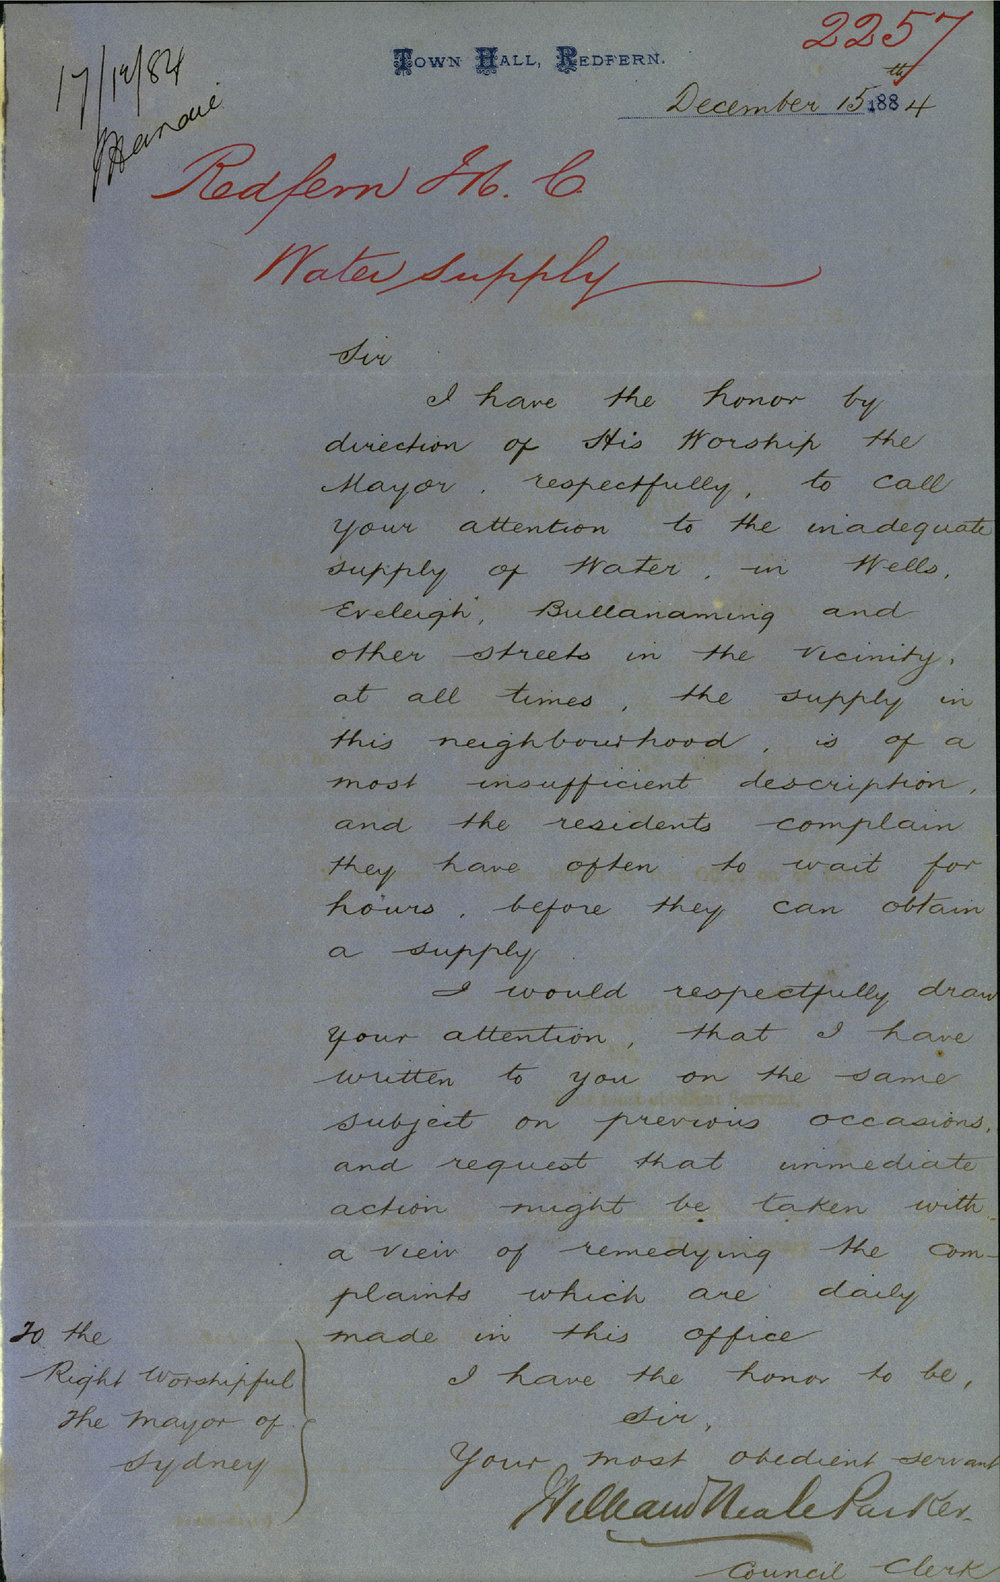 2257
TOWN HALL, REDFERN.
17/12/84
December 15th 1884
Redfern M. C.
Water supply
Sir
I have the honor by
direction of His Worship the
Mayor, respectfully, to call
your attention to the inadequate
supply of Water, in Wells,
Eveleigh, Bullanaming and
other streets in the vicinity,
at all times, the supply in
this neighbourhood, is of a
most insufficient description,
and the residents complain
they have often to wait for
hours, before they can obtain
a supply
I would respectfully draw
your attention, that I have
written to you on the same
subject on previous occasions,
and request that immediate
action might be taken with
a view of remedying the com-
plaints which are daily
made in this office
I have the honor to be,
Sir,
Your most obedient servant
William Neale Parker
Council Clerk
To the
Right Worshipful
The Mayor of
Sydney